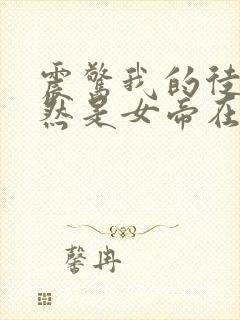 震惊我的徒
然是女帝在
馨冉